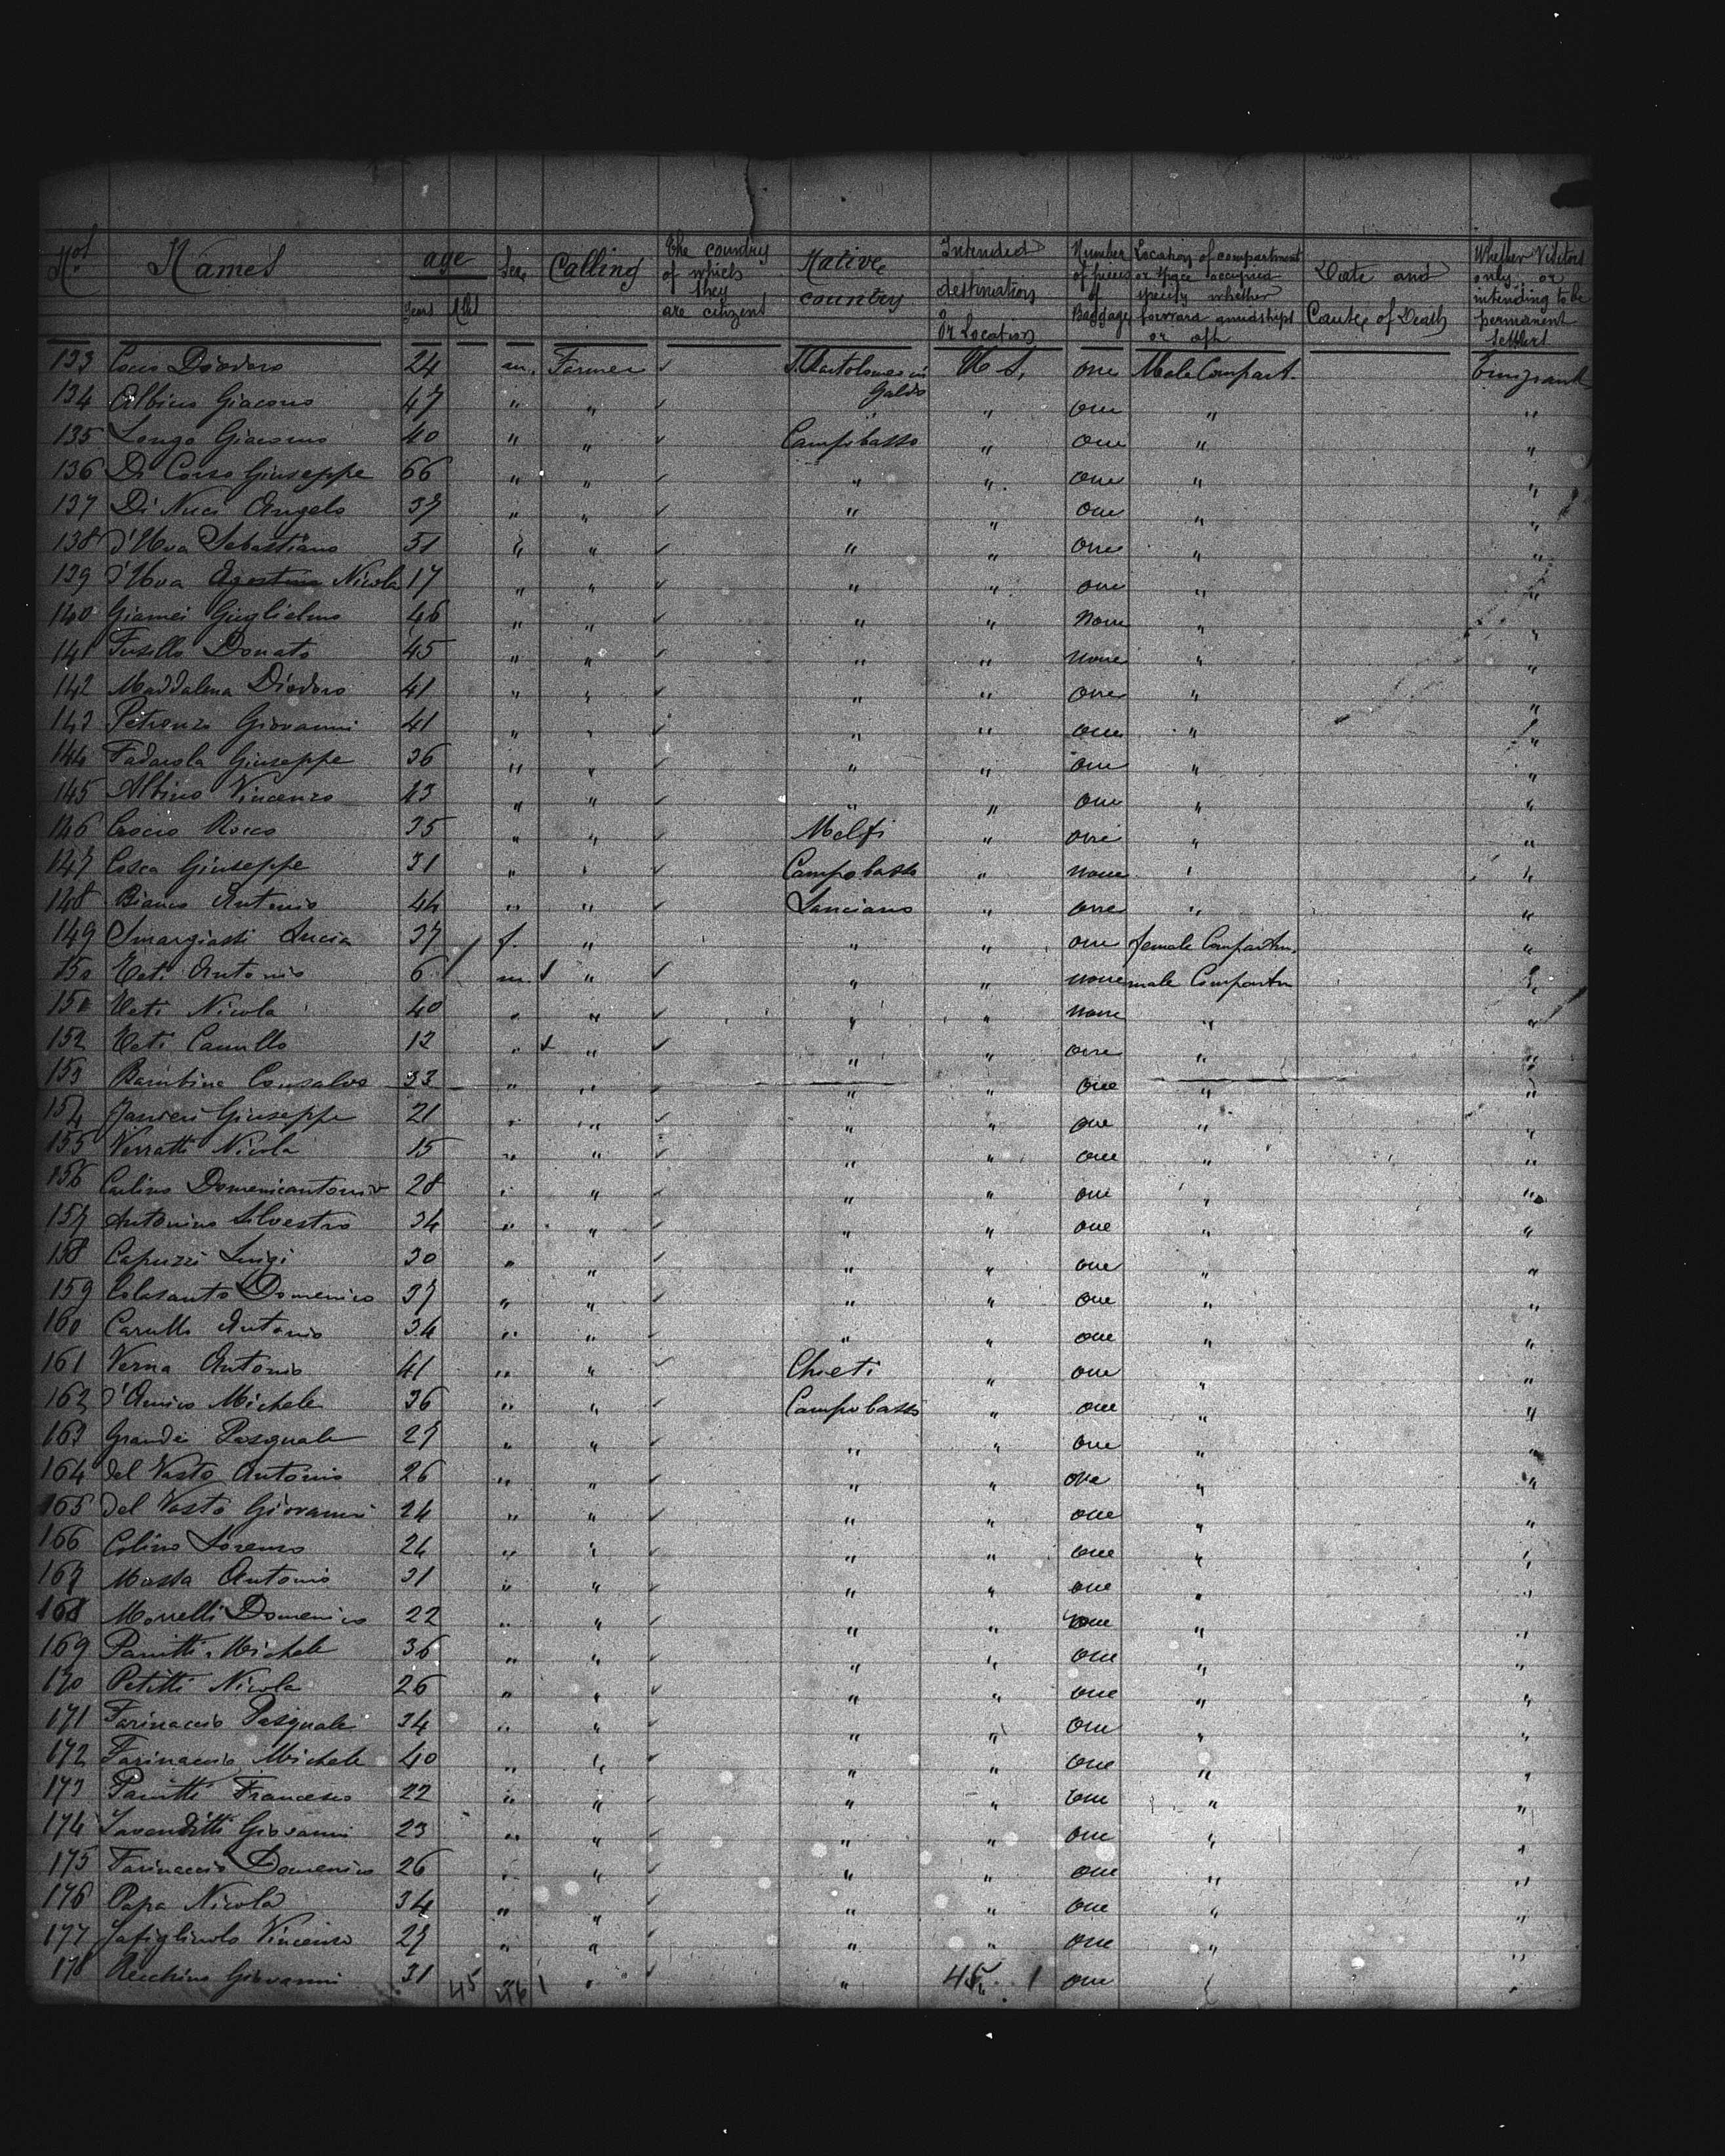 Nos Names age Sex Calling The country of which they are citizens Native country Intended destination or Location Number of pieces of Baggage Location of compartment or space occupied specify whether forward amidships or aft Date and Cause of Death Whether Visitors only or intending to be permanent Settlers
Years Mts
133 Diodoro 24 m. Farmer ✓ S. Bartolomeo in Galdo U S, one Male Compart. Emigrant
134 Albino Giacomo 47 " " ✓ " " one " "
135 Longo Giacomo 40 " " ✓ Campobasso " one " "
136 Di Corso Giuseppe 66 " " ✓ " " one " "
137 Di Nuci Angelo 37 " " ✓ " " one " "
138 d'Uva Sebastiano 31 " " ✓ " " one " "
139 d'Uva Nicola 17 " " ✓ " " one " "
140 Giamei Guglielmo 46 " " ✓ " " none " "
141 Fusello Donato 45 " " ✓ " " none " "
142 Maddalena Diodoro 41 " " ✓ " " one " "
143 Petronzi Giovanni 41 " " ✓ " " one " "
144 Fadarola Giuseppe 36 " " ✓ " " one " "
145 Albino Vincenzo 43 " " ✓ " " one " "
146 Crocio Rocco 35 " " ✓ Melfi " one " "
147 Cosca Giuseppe 31 " " ✓ Campobasso " none " "
148 Bianco Antonio 44 " " ✓ Lanciano " one " "
149 Smargiassi Lucia 37 f. " " " one female Compartm. "
150 Veti Antonio 6 m. " ✓ " " none male Compartm "
151 Veti Nicola 40 " " ✓ " " none " "
152 Veti Camillo 12 " " ✓ " " one " "
153 Bambina Consalvo 33 " " ✓ " " one " "
154 Ranieri Giuseppe 21 " " ✓ " " one " "
155 Verratti Nicola 15 " " ✓ " " one " "
156 Carlino Domenicantonio 28 " " ✓ " " one " "
157 Antonino Silvestro 34 " " ✓ " " one " "
158 Capuzzi Luigi 30 " " ✓ " " one " "
159 Colasanto Domenico 37 " " ✓ " " one " "
160 Carulli Antonio 34 " " ✓ " " one " "
161 Verna Antonio 41 " " ✓ Chieti " one " "
162 d'Amico Michele 36 " " ✓ Campobasso " one " "
163 Grande Pasquale 27 " " ✓ " " one " "
164 del Vasto Antonio 26 " " ✓ " " one " "
165 del Vasto Giovanni 24 " " ✓ " " one " "
166 Colino Lorenzo 24 " " ✓ " " one " "
167 Massa Antonio 31 " " ✓ " " one " "
168 Morrelli Domenico 22 " " ✓ " " one " "
169 Panitti Michele 36 " " ✓ " " one " "
170 Petitti Nicola 26 " " ✓ " " one " "
171 Farinaccio Pasquale 34 " " ✓ " " one " "
172 Farinaccio Michele 40 " " ✓ " " one " "
173 Panitti Francesco 22 " " ✓ " " one " "
174 Iavenditti Giovanni 23 " " ✓ " " one " "
175 Farinaccio Domenico 26 " " ✓ " " one " "
176 Papa Nicola 34 " " ✓ " " one " "
177 Vincenzo 27 " " ✓ " " one " "
178 Recchino Giovanni 31 45 46 1 " ✓ " 45 1 one " "